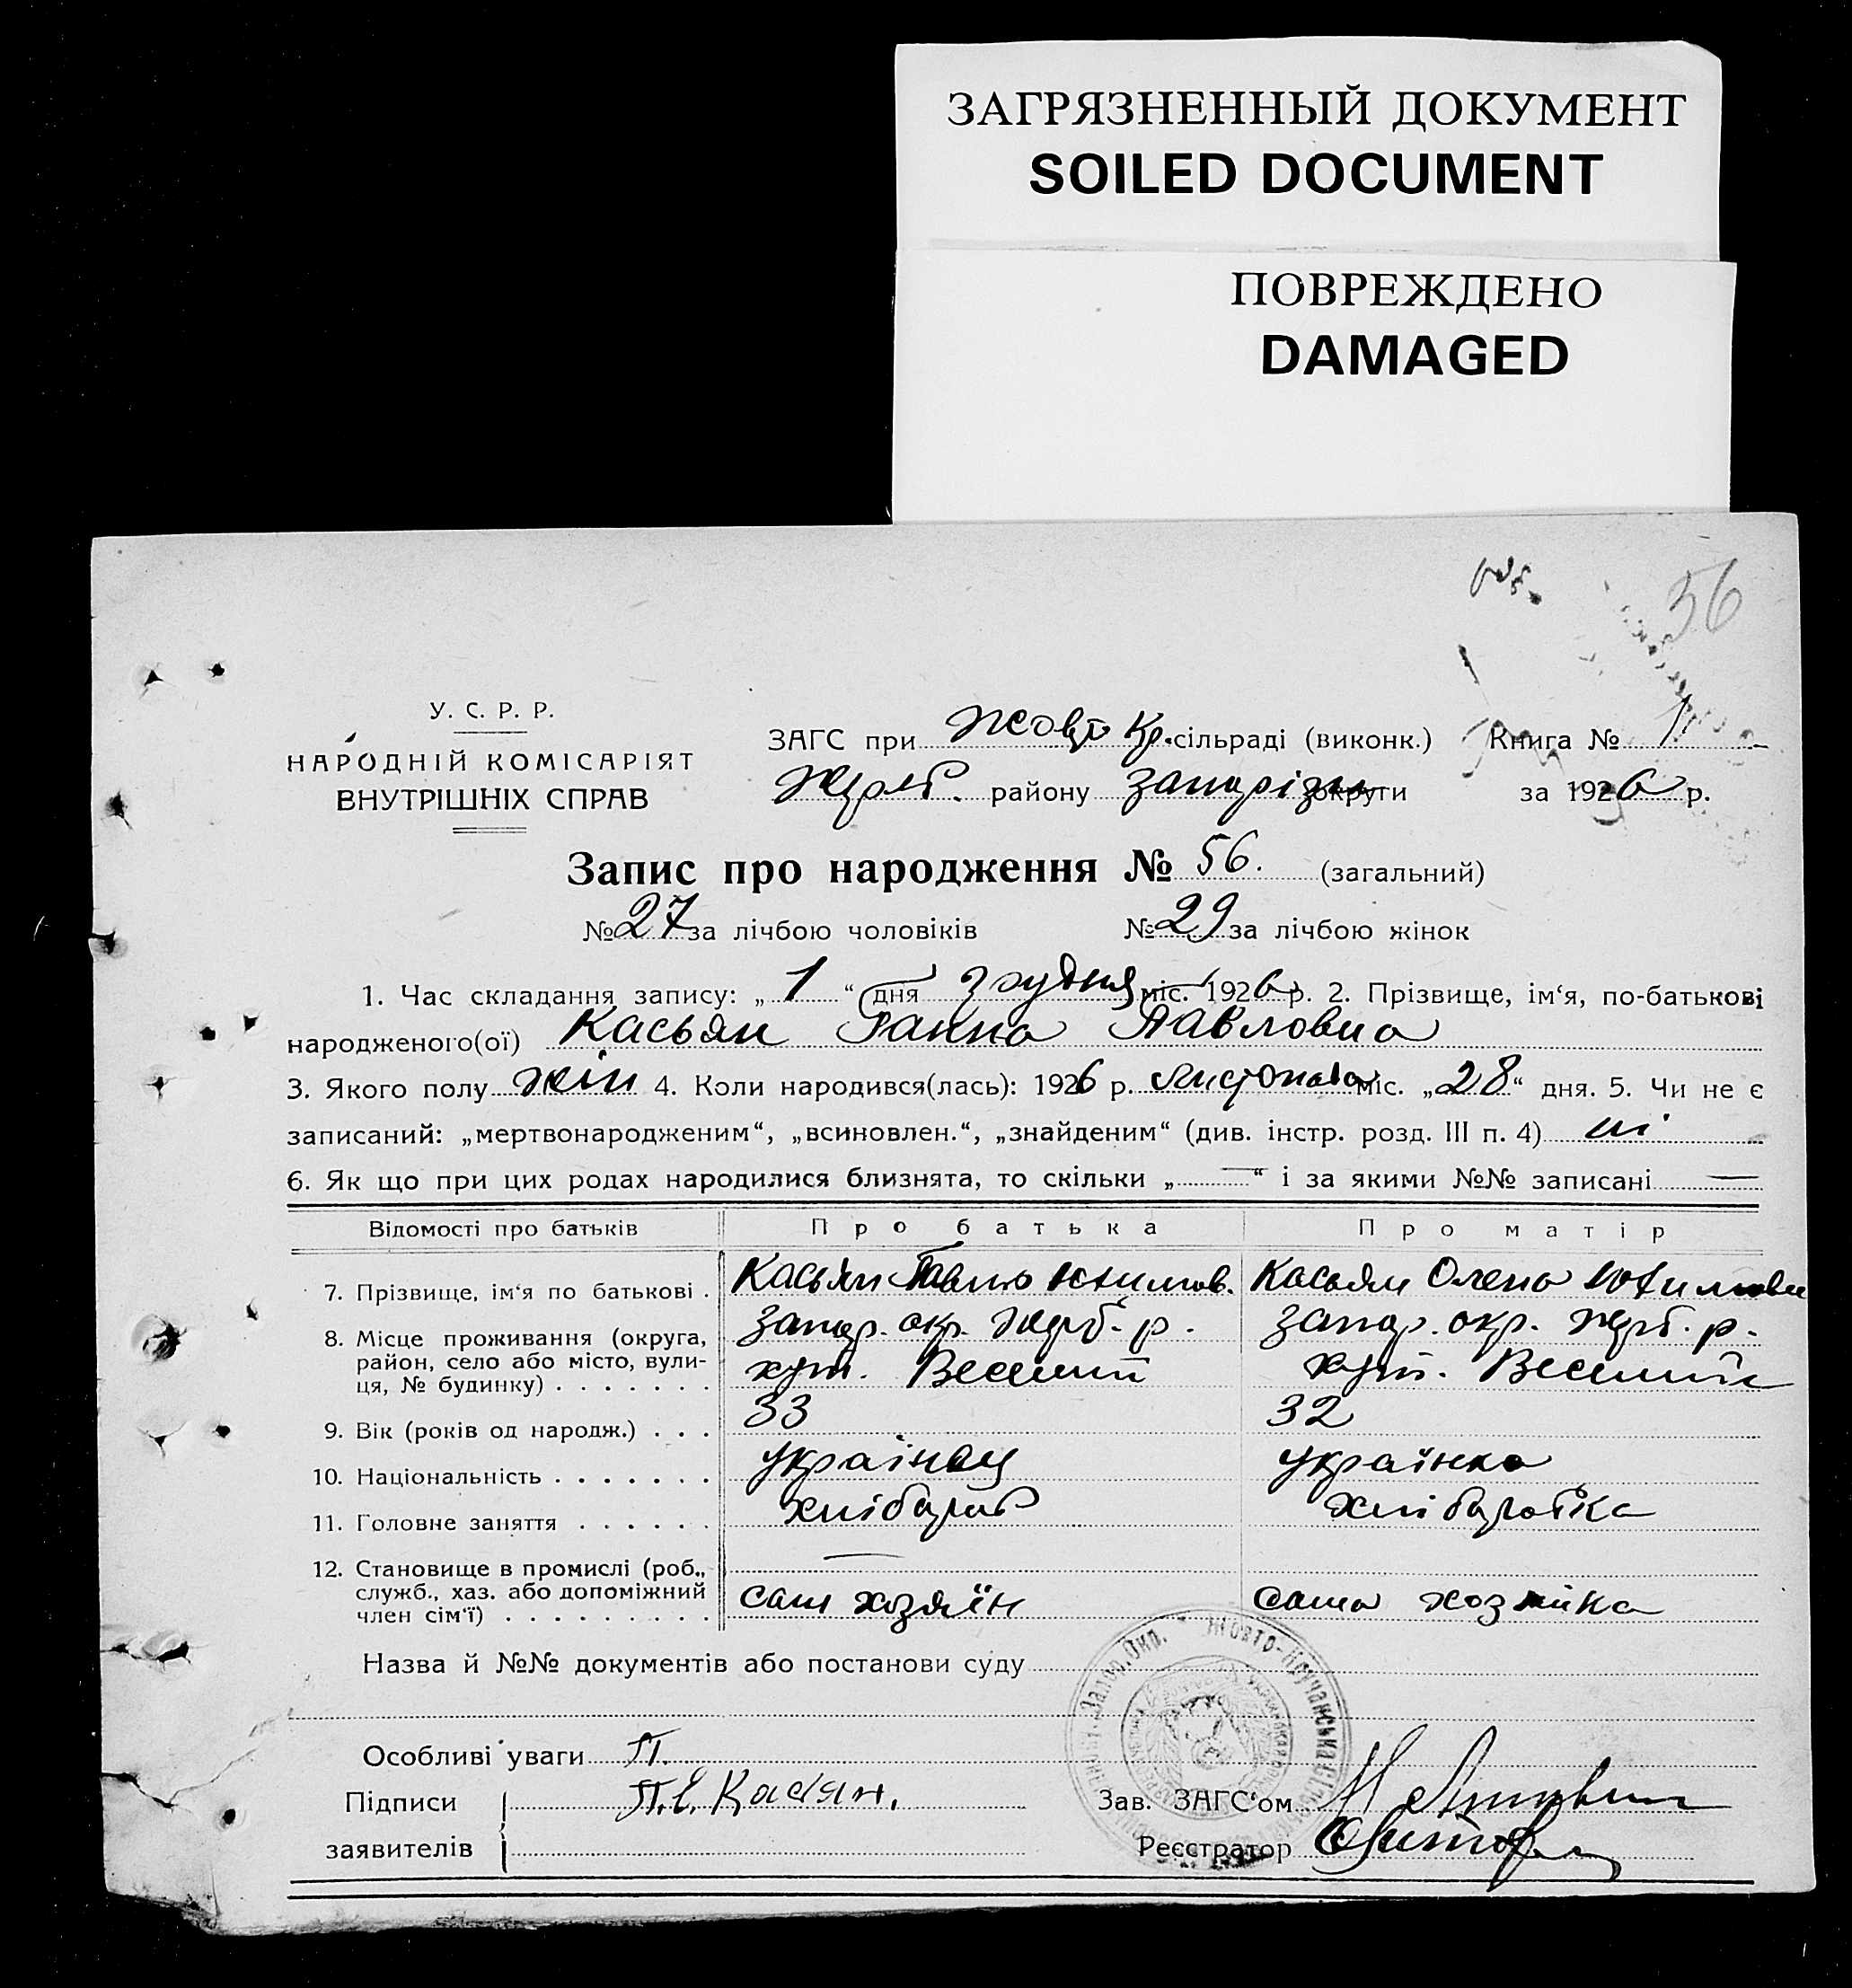 ЗАГРЯЗНЕННЫЙ ДОКУМЕНТ
SOILED DOCUMENT
ПОВРЕЖДЕНО
DAMAGED
56
У. С. Р. Р.
НАРОДНІЙ КОМІСАРІЯТ
ВНУТРІШНІХ СПРАВ
ЗАГС при Жовто Кр. сільраді (виконк.) Книга № 1
Жерб. району Запоріз округи за 1926 р.
Запис про народження № 56. (загальний)
№ 27 за лічбою чоловіків № 29 за лічбою жінок
1. Час складання запису: „ 1 “ дня грудня міс. 1926 р. 2. Прізвище, ім‘я, по-батькові
народженого(ої) Касьян Ганна Павловна
3. Якого полу жін 4. Коли народився(лась): 1926 р. листопада міс. „28“ дня. 5. Чи не є
записаний: „мертвонародженим“, „всиновлен.“, „знайденим“ (див. інстр. розд. III п. 4) ні
6. Як що при цих родах народилися близнята, то скільки „ — “ і за якими №№ записані —
Відомості про батьків Про батька Про матір
7. Прізвище, ім‘я по батькові . Касьян Павло Касьян Олена
8. Місце проживання (округа, Запор. окр. Жерб. р. Запор. окр. Жерб. р.
район, село або місто, вули- хут. Веселий хут. Веселий
ця, № будинку) . . . . . . .
9. Вік (років од народж.) . . . 33 32
10. Національність . . . . . . . українець українка
11. Головне заняття . . . . . . хлібороб хліборобка
12. Становище в промислі (роб., —
служб., хаз. або допоміжний сам хозяїн сама хозяйка
член сім‘ї) . . . . . . . . .
Назва й №№ документів або постанови суду
Особливі уваги П.
Підписи П.Е. Касян.
заявителів
Зав. ЗАГС‘ом
Реєстратор
Запор. Окр. * Жовто-Кручанська